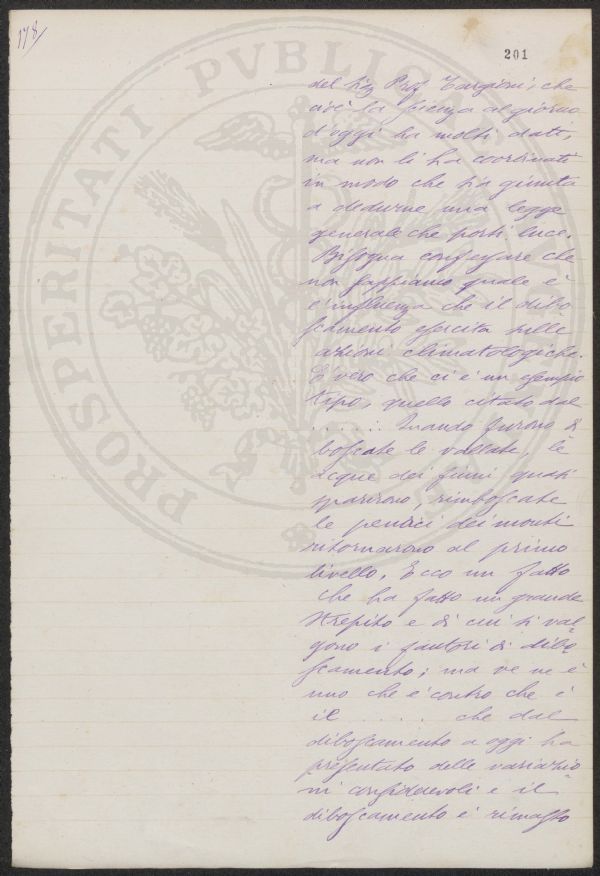 178/
201
PROSPERITATI PVBLICAE
del Sig. Prof. Targioni; che
cioè la scienza al giorno
d'oggi ha molti dati,
ma non li ha coordinati
in modo che sia giunta
a dedurne una legge
generale che porti luce.
Bisogna confessare che
non sappiamo quale è
l'influenza che il dibo
scamento esercita sulle
azioni climatologiche.
È vero che ci è un esempio
tipo, quello citato dal
..... Quando furono di
boscate le vallate, le
acque dei fiumi quasi
sparirono, rimboscate
le pendici dei monti
ritornarono al primo
livello. Ecco un fatto
che ha fatto un grande
strepito e di cui si val=
gono i fautori di dibo=
scamento; ma ve ne è
uno che è contro che è
il ..... che dal
diboscamento a oggi ha
presentato delle variazio=
ni considerevoli e il
diboscamento è rimasto